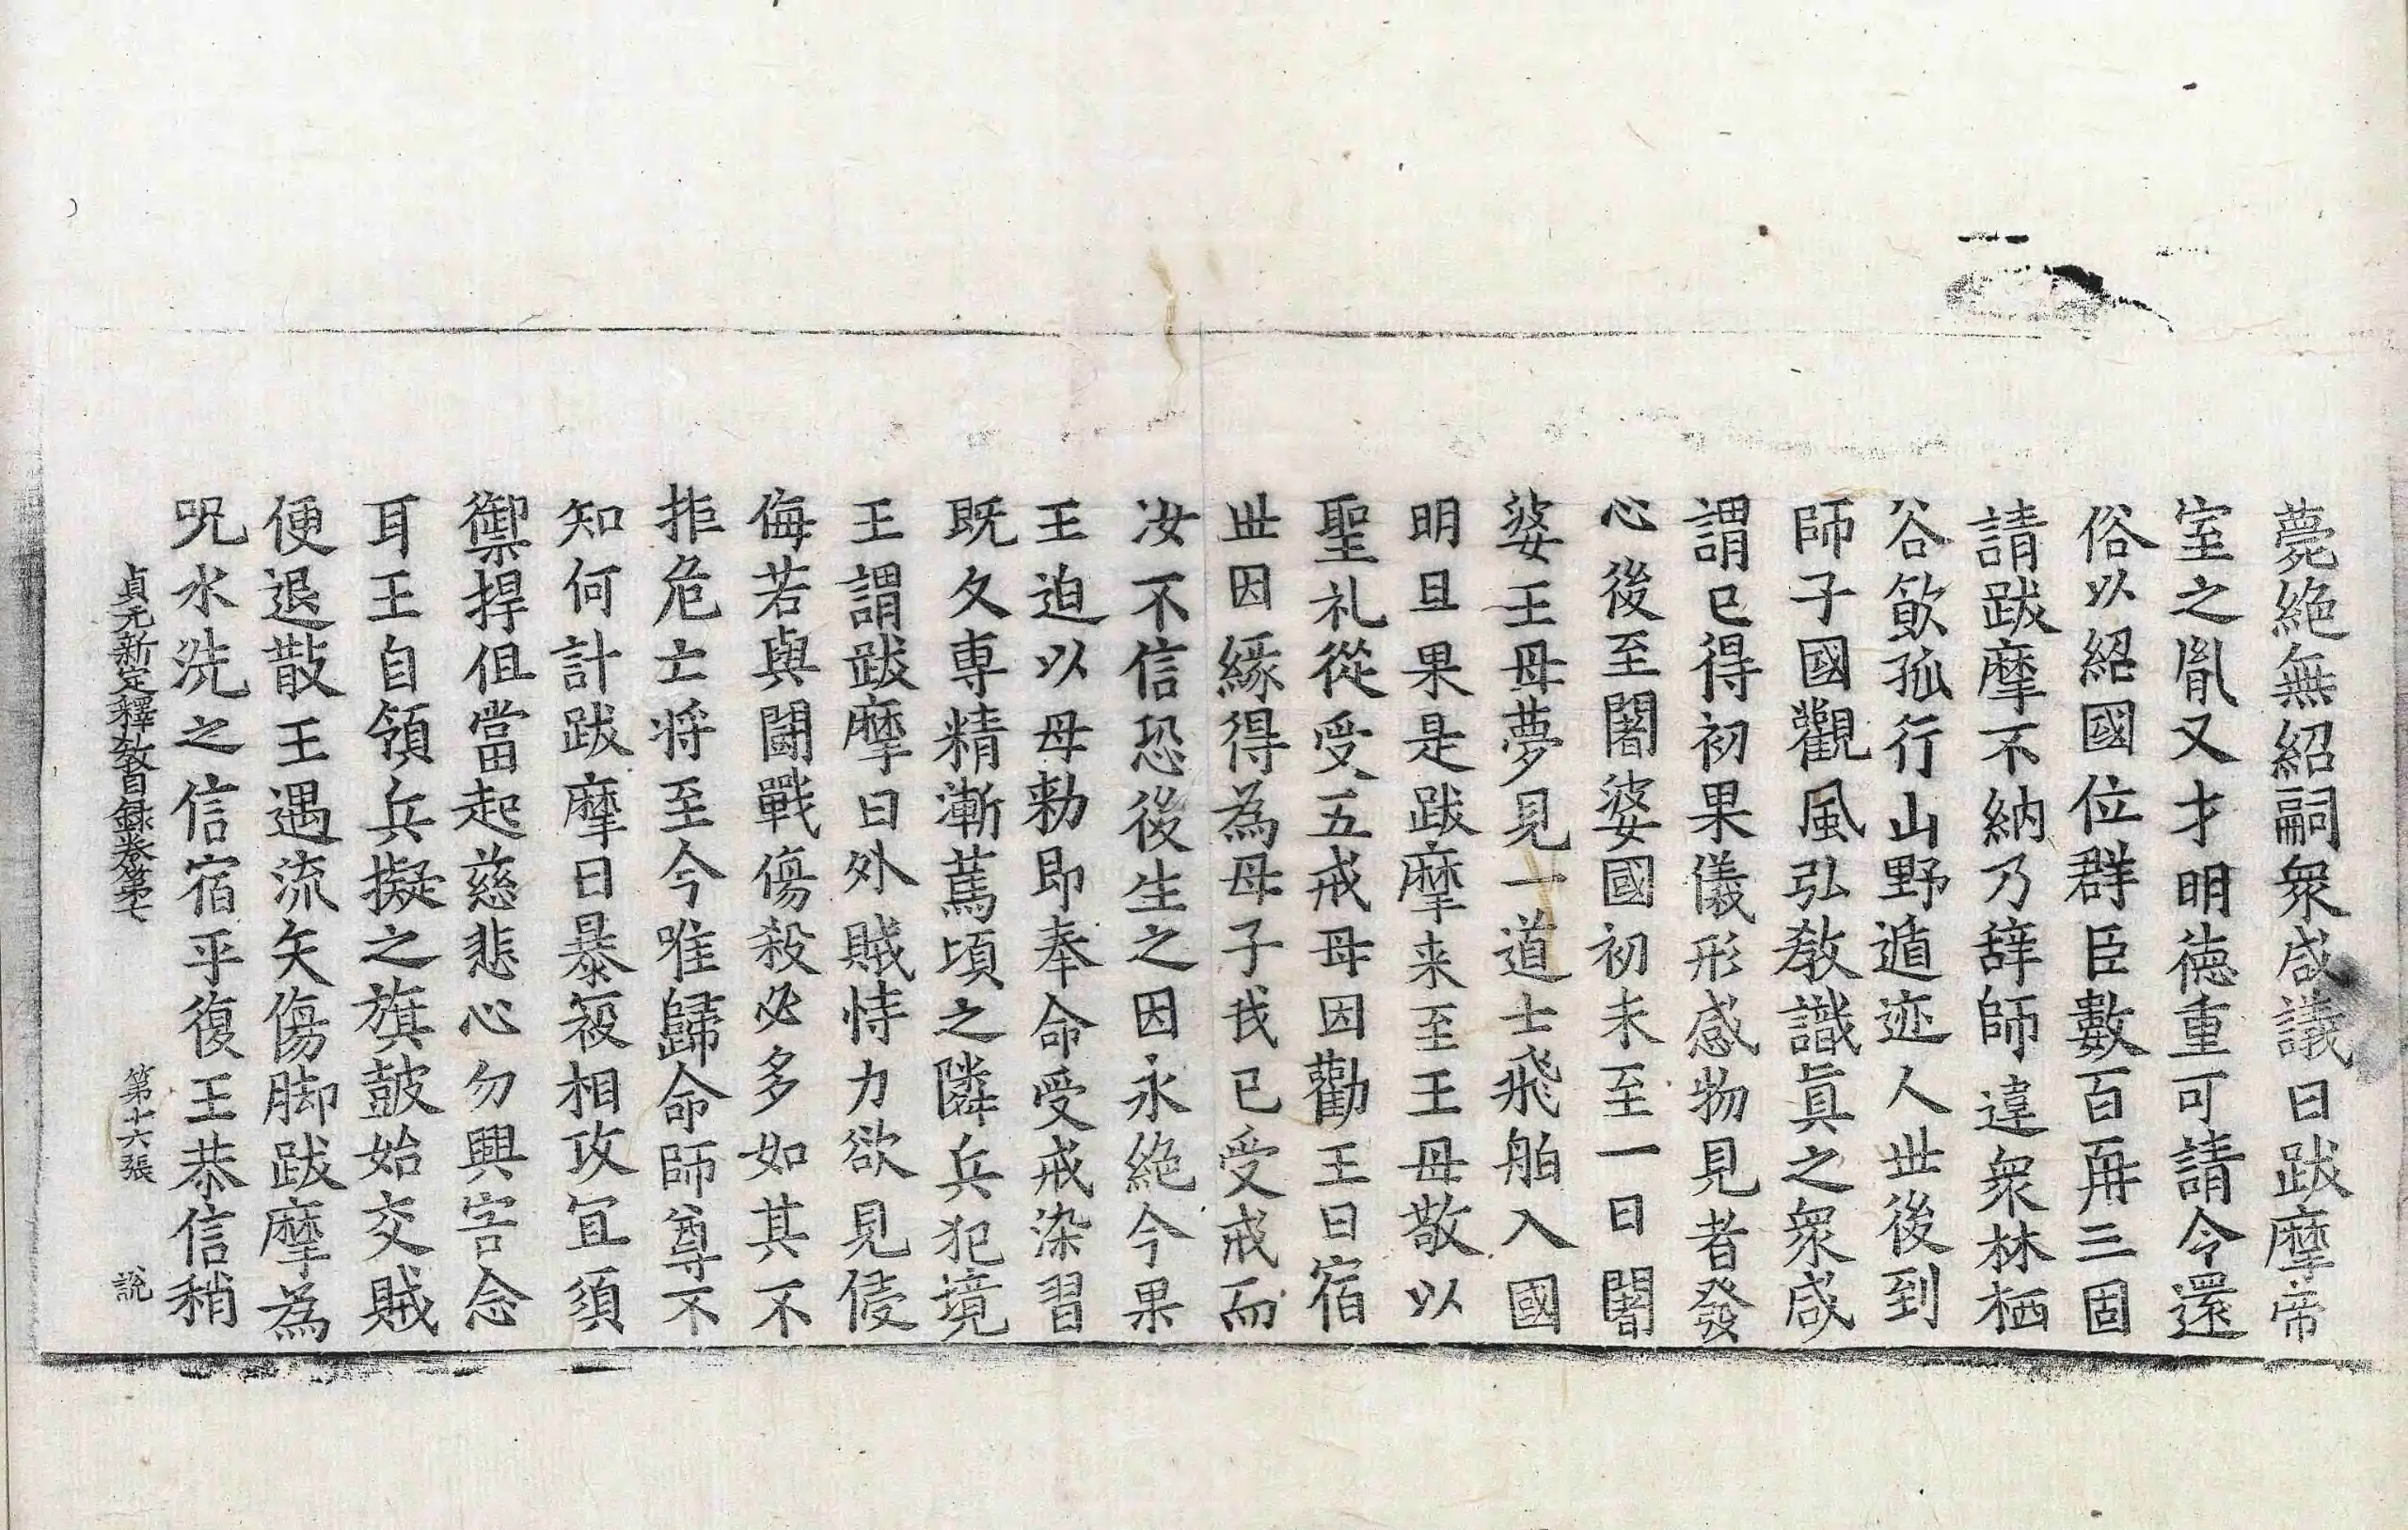 薨絶無紹嗣衆咸議曰跋摩帝
室之胤又才明德重可請令還
俗以紹國位群臣數百再三固
請跋摩不納乃辭師違衆林栖
谷飲孤行山野遁迹人世後到
師子國觀風弘教識眞之衆咸
謂已得初果儀形感物見者發
心後至闍婆國初未至一日闍
婆王母夢見一道士飛舶入國
明旦果是跋摩来至王母敬以
聖礼從受五戒母因勸王曰宿
世因緣得為母子我已受戒而
汝不信恐後生之因永絶今果
王迫以母勑即奉命受戒染習
既久専精漸篤頃之隣兵犯境
王謂跋摩曰外賊恃力欲見侵
侮若與鬪戰傷殺必多如其不
拒危亡将至今唯歸命師尊不
知何計跋摩曰暴寇相攻冝須
禦捍但當起慈悲心勿興害念
耳王自領兵擬之旗鼓始交賊
便退散王遇流矢傷脚跋摩為
呪水洗之信宿平復王恭信稍
貞元新定釋教目録卷第七　第十六張　說